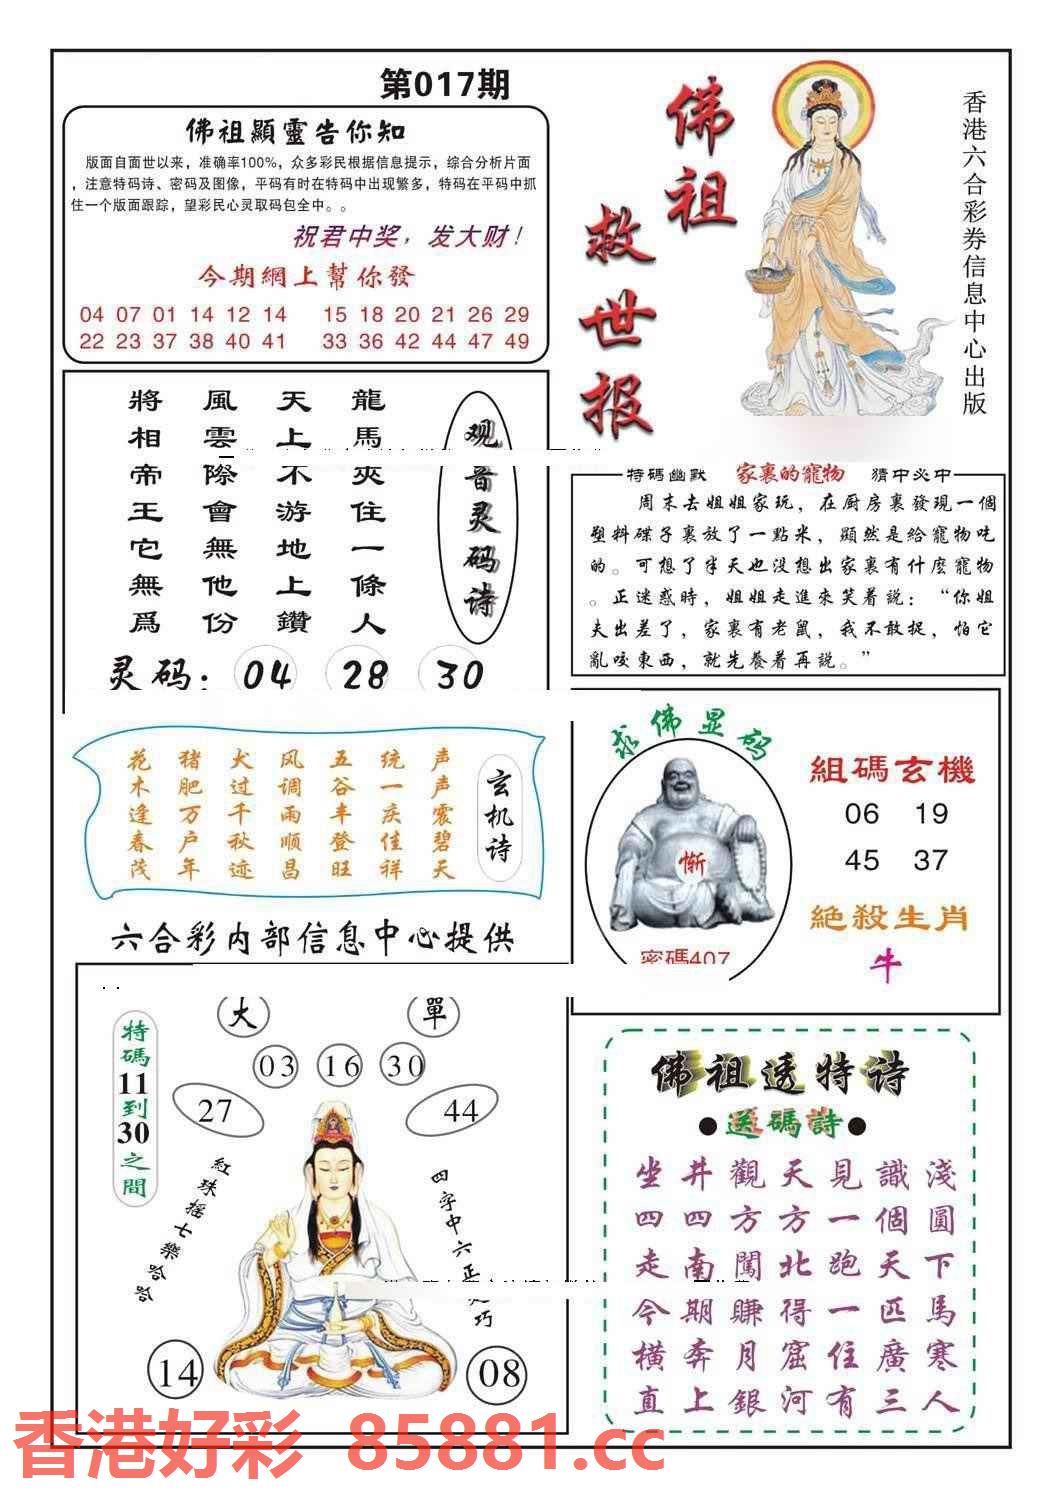 第017期
佛祖顯靈告你知
版面自面世以来，准确率100%，众多彩民根据信息提示，综合分析片面
，注意特码诗、密码及图像，平码有时在特码中出现繁多，特码在平码中抓
住一个版面跟踪，望彩民心灵取码包全中。。
祝君中奖，发大财！
今期網上幫你發
04 07 01 14 12 14 15 18 20 21 26 29
22 23 37 38 40 41 33 36 42 44 47 49
佛祖
救世报
香港六合彩券信息中心出版
观音灵码诗
龍馬夾住一條人
天上不游地上鑽
風雲際會無他份
將相帝王它無爲
灵码：04 28 30
特碼幽默 家裏的寵物 猜中必中
周末去姐姐家玩，在厨房裏發現一個
塑料碟子裏放了一點米，顯然是給寵物吃
的。可想了半天也没想出家裏有什麽寵物
。正迷惑時，姐姐走進來笑着説：“你姐
夫出差了，家裏有老鼠，我不敢捉，怕它
亂咬東西，就先養着再説。”
玄机诗
声声震碧天
统一庆佳祥
五谷丰登旺
风调雨顺昌
犬过千秋迹
猪肥万户年
花木逢春茂
六合彩内部信息中心提供
求佛显码
惭
密碼407
組碼玄機
06 19
45 37
絶殺生肖
牛
特碼11到30之間
大 單
03 16 30
27 44
紅珠摇七樂哈哈
四字中六正
巧
14 08
佛祖透特诗
●送碼詩●
坐井觀天見識淺
四四方方一個圓
走南闖北跑天下
今期賺得一匹馬
横奔月窟住廣寒
直上銀河有三人
香港好彩 85881.cc